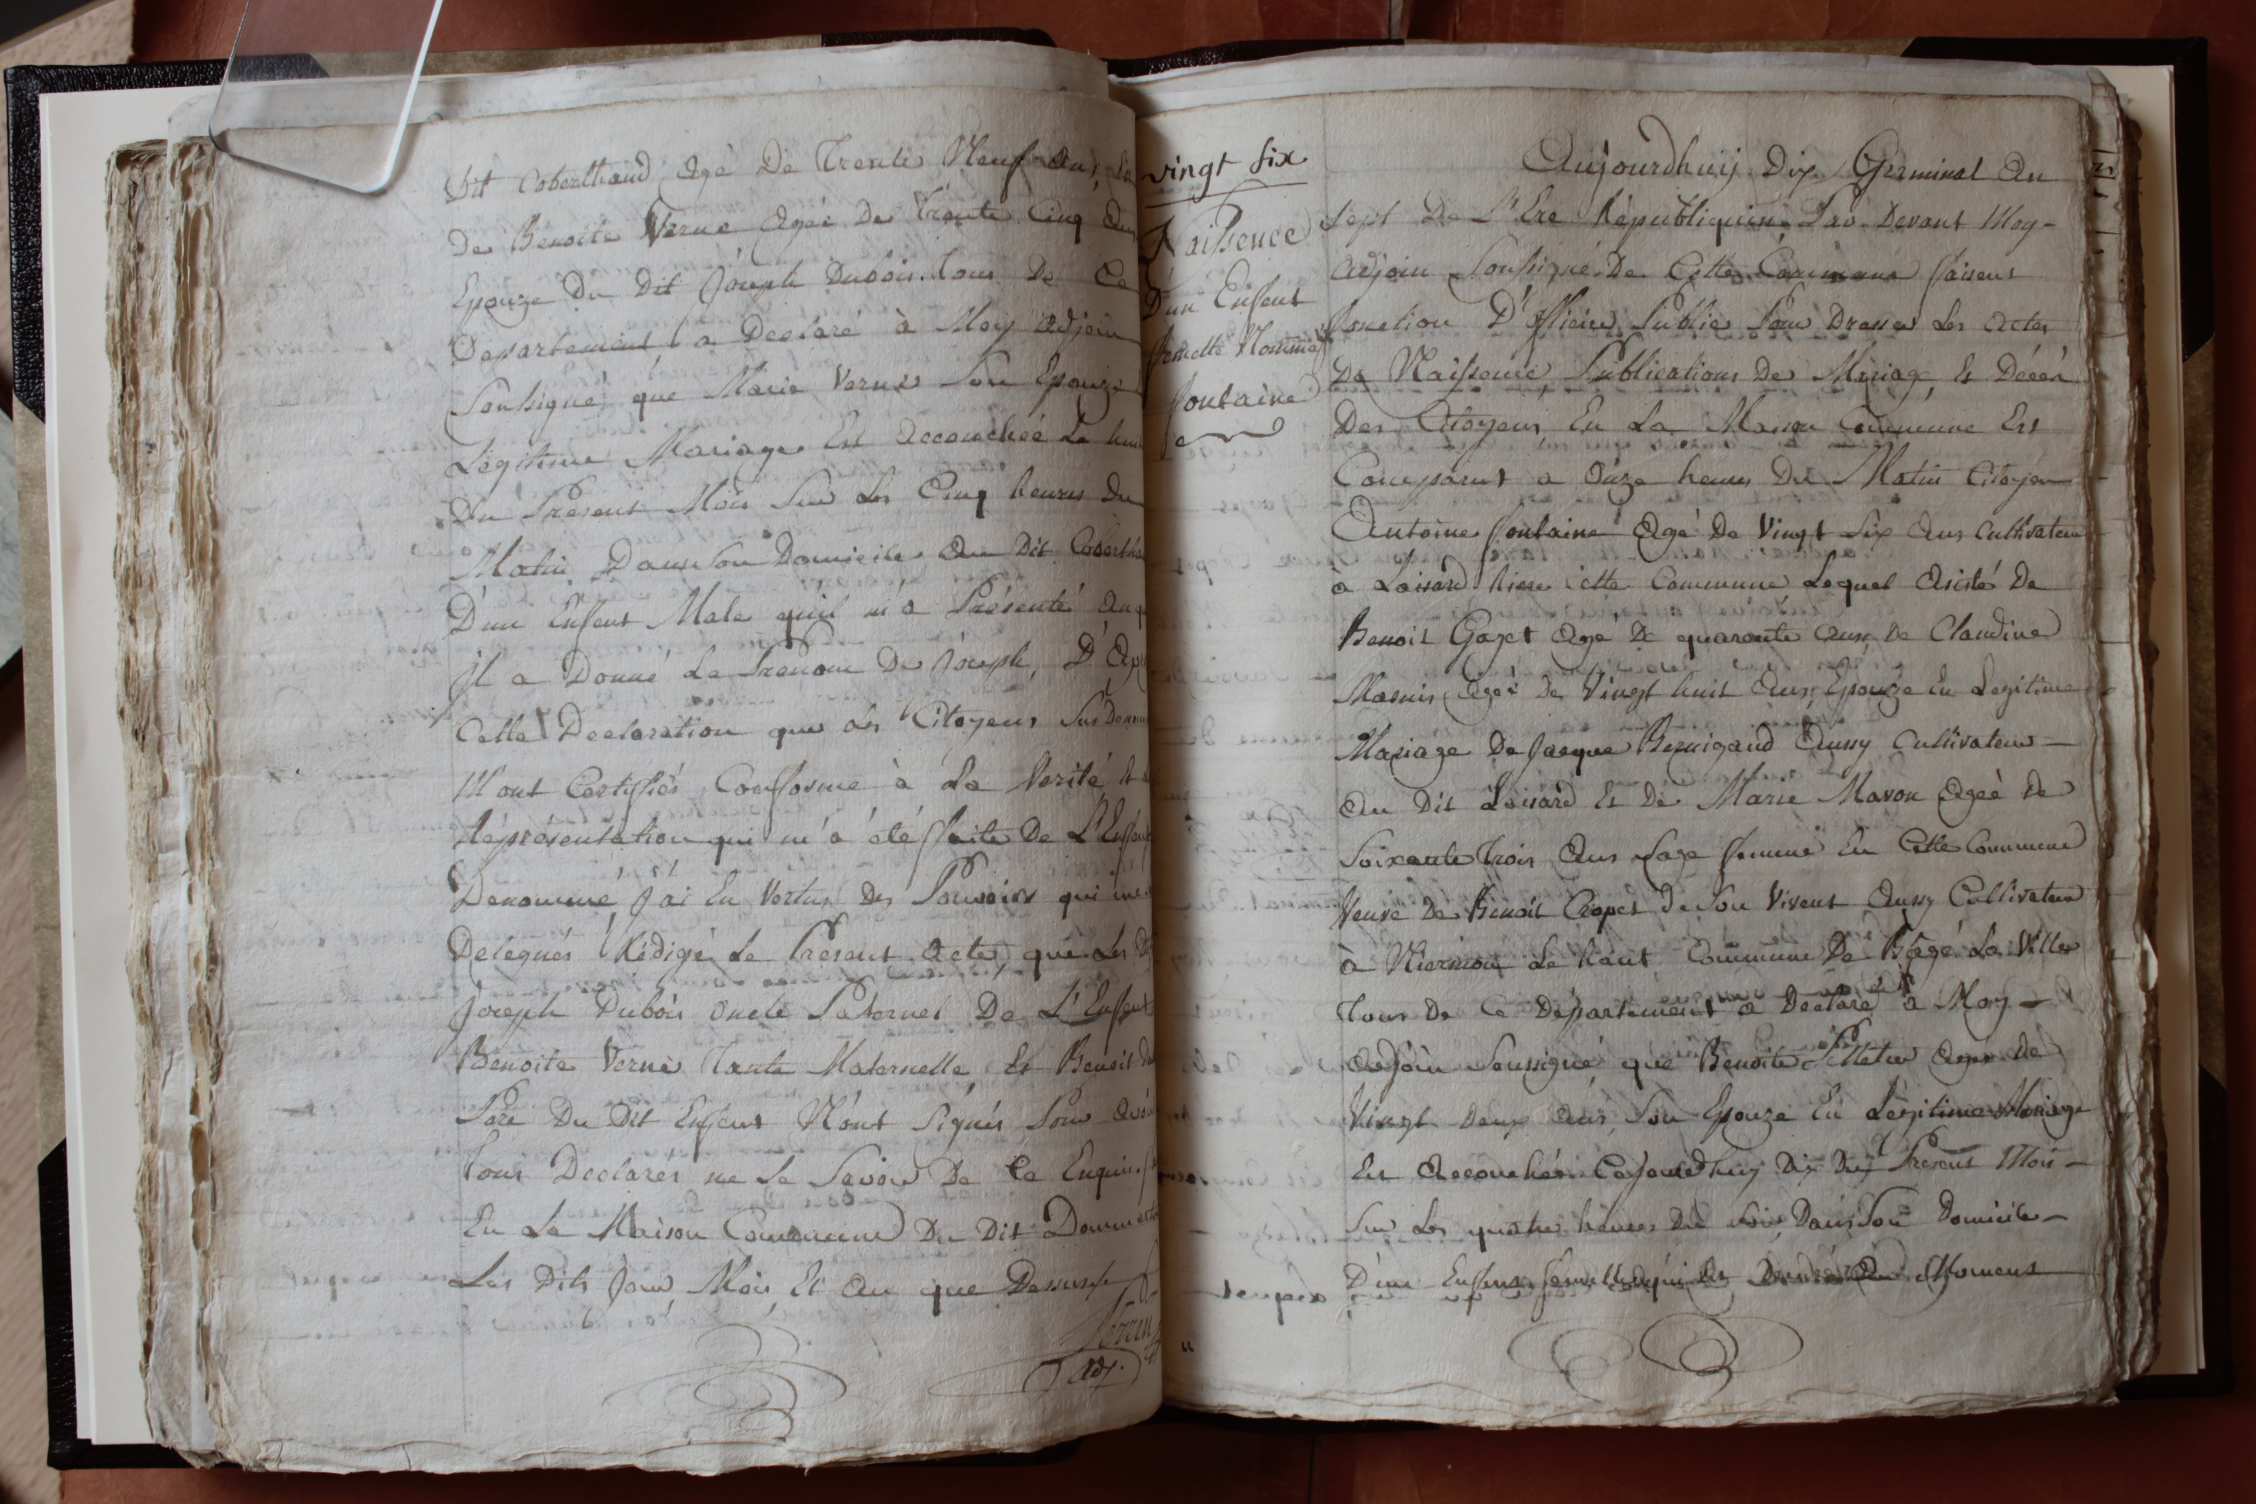 Dit Coberthaud, Agé De Trente Neuf Ans, Et
De Benoite Verne Agée De Trente Cinq Ans
Epouze Du Dit Joseph Dubois. Tous De Ce
Departement a Declaré à Moy Adjoin
Sousigné que Marie Verne Son Epouze
Légitime Mariage Est Accouchée Le
Du Present Mois Sur Les Cinq heures Du
Matin Dans Son Domicile Au Dit
D'un Enfent Male qu'il m'a Présenté
Jl a Donné Le Prenom De Joseph, D'
Cette Declaration que Les Citoyens Sus
M'ont Certiffiés Confforme à La Verité Et
Répresentation qui m'a été ffaite De L'Enffent
Denommé J'ai En Vertus Des Pouvoirs qui me
Delegués Rédigé Le Present Acte, que Les
Joseph Dubois Oncle Paternel De L'Enffent
Benoite Verne Tante Maternelle Et Benoit
Pere Du Dit Enfent N'ont Signés Pour
Tous Declarés ne Le Savoir De Ce Enquis.
En La Maison Commune Du Dit
Les Dits Jour, Mois, Et An que Dessus
adj.
vingt six
Naissence
D'un Enfent
ffemelle Nommé
ffontaine
Aujourdhuij Dix Germinal An
Sept De L'Ere Républiquin, Par Devant Moy
Adjoin Sousigné De Cette Commune ffaisent
ffonction D'Officier Public Pour Dresser Les Actes
De Naissence, Publications De Mariage, Et Décés
Des Citoyens En La Maison Commune Est
Comparut a Onze heures Du Matin Citoyen
Antoine ffontaine Agé De Vingt Six Ans Cultivateur
à Loisard cette Commune Lequel Asisté De
Benoit Gaget Agé De quarante Ans, De Claudine
Agée De Vingt huit Ans, Epouze En Legitime
Mariage De Jacque Aussy Cultivateur
Au Dit Loisard Et De Marie Mason Agée De
Soixante Trois Ans Sage ffemme En Cette Commune
Veuve De Benoit De Son Vivent Aussy Cultivateur
à Le haut Commune De Bâgé La Ville
Tous De Ce Departement a Declaré à Moy
Adjoin Soussigné que Benoite Agee De
Vingt Deux Ans, Son Epouze En Légitime Mariage
Est Accouchée Cejourdhuy Dix Du Present Mois
Sur Les quatre heures Du Dans Son Domicile
D'un Enffent ffemelle Moment